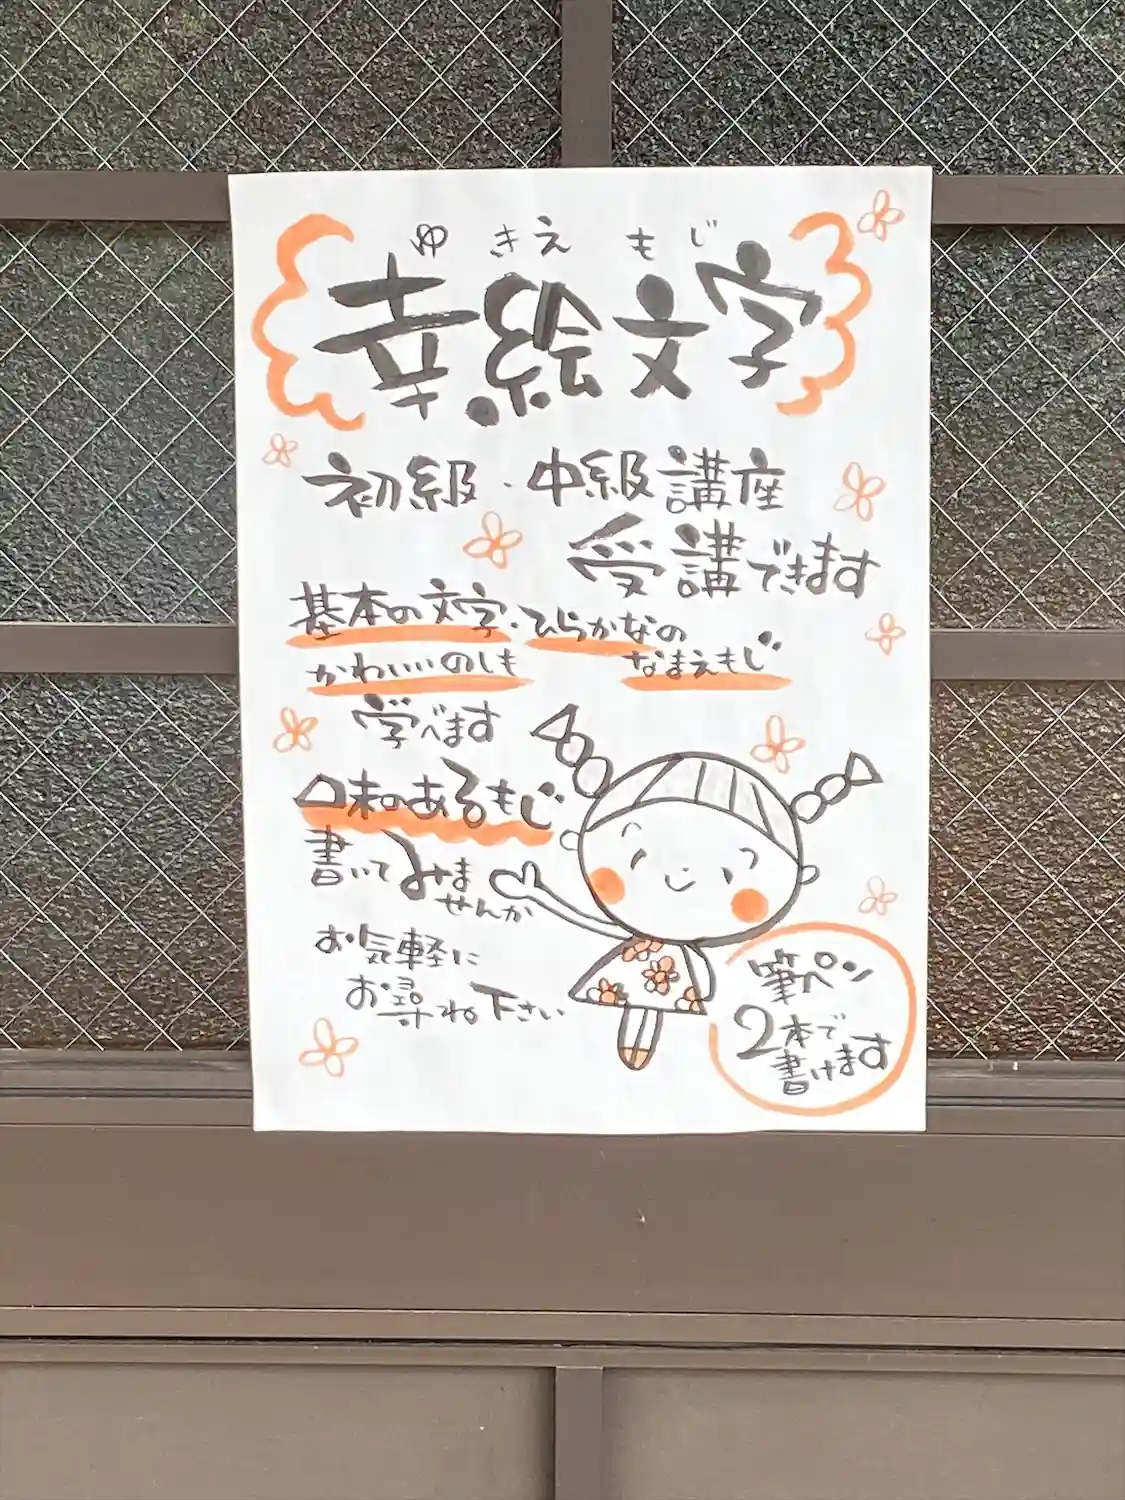 ゆきえもじ
幸絵文字
初級・中級講座
受講できます
基本の文字・ひらかなの
かわいいのしも なまえもじ
学べます
味のあるもじ
書いてみま
せんか
お気軽に
お尋ね下さい
筆ペン
2本で
書けます